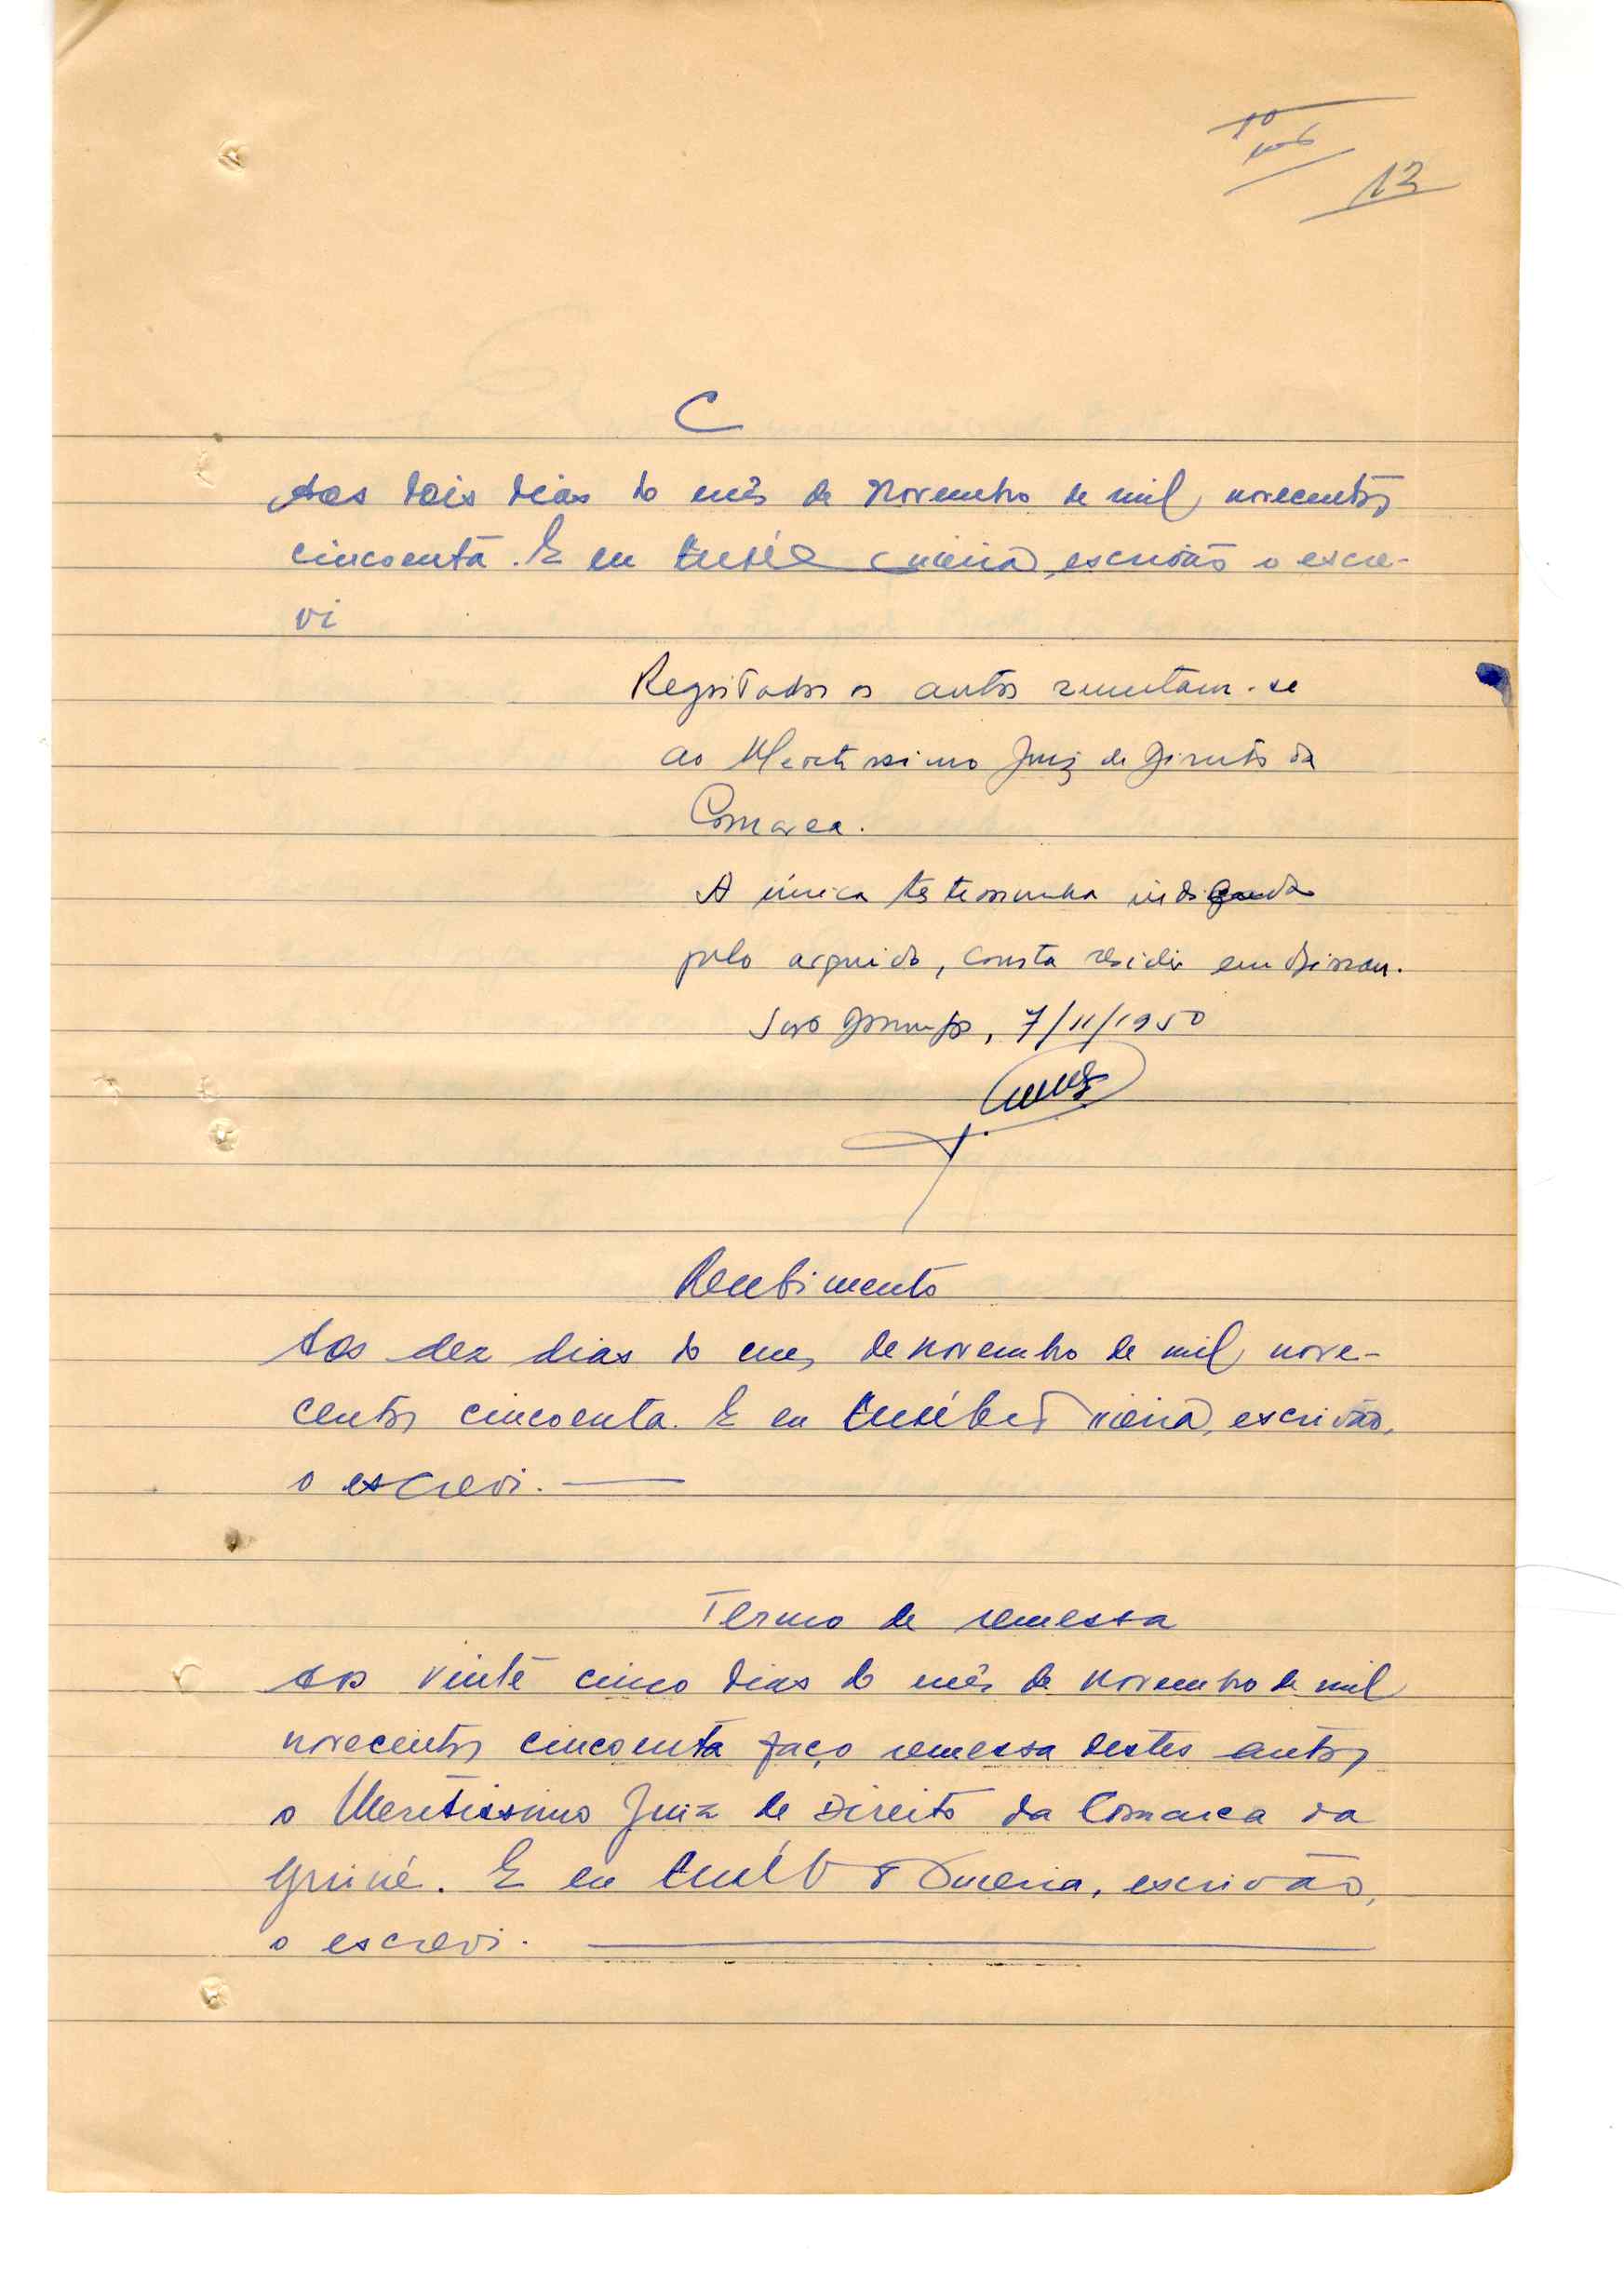 10
13
C
Aos dois dias do mês de Novembro de mil novecentos
cincoenta. E eu escrivão o escre-
vi
Registados os autos remetam-se
ao Meretissimo Juiz de Direito da
Comarca.
A única testemunha indicada
pelo arguido, consta residir em Bissau.
7/11/1950
Recebimento
Aos dez dias do mes de novembro de mil nove-
centos cincoenta. E eu Eusébio Vieira, escrivão,
o escrevi.
Termo de remessa
Aos vinte cinco dias do mês de novembro de mil
novecentos cincoenta faço remessa destes autos
o Meretissimo Juiz de Direito da Comarca da
Guiné. E eu escrivão,
o escrevi.